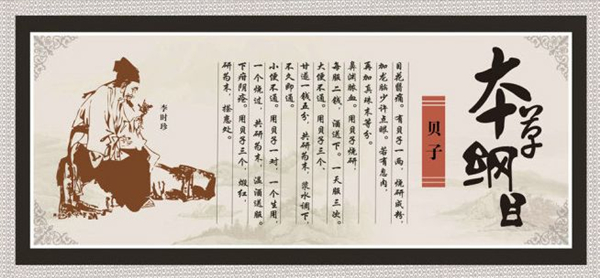 本草纲目
贝子
目花翳痛。有贝子一两,烧研成粉,
加龙脑少许点眼。若有息肉,
再加真珠末等分。
鼻渊脓血。用贝子烧研,
每服二钱,酒送下。一天服三次。
大便不通。用贝子三个,
甘遂一钱五分,共研为末,浆水调下,
不久即通。
小便不通。用贝子一对,一个生用,
一个烧过,共研为末,温酒送服。
下疳阴疮。用贝子三个,煅红,
研为末,搽患处。
李时珍